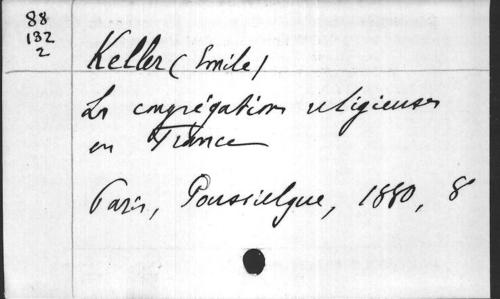 88
132
2
Keller (Emile)
Les congrégations religieuses
en France
Paris, Poussielgue, 1880, 8°